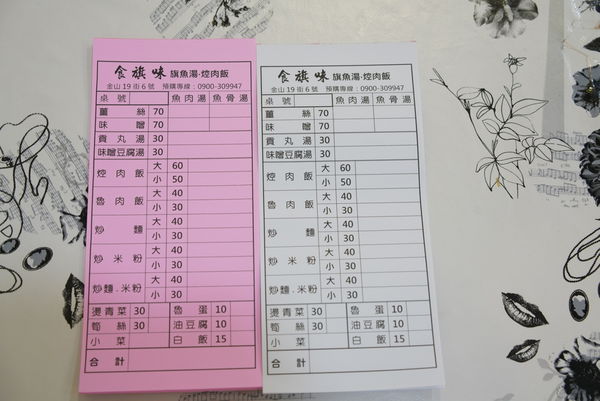 食旗味 旗魚湯·焢肉飯
金山19街6號 預購專線：0900-309947
桌號 魚肉湯 魚骨湯
薑絲 70
味噌 70
貢丸湯 30
味噌豆腐湯 30
焢肉飯 大 60
小 50
魯肉飯 大 40
小 30
炒麵 大 40
小 30
炒米粉 大 40
小 30
炒麵.米粉 大 40
小 30
燙青菜 30 魯蛋 10
筍絲 30 油豆腐 10
小菜 白飯 15
合計
食旗味 旗魚湯·焢肉飯
金山19街6號 預購專線：0900-309947
桌號 魚肉湯 魚骨湯
薑絲 70
味噌 70
貢丸湯 30
味噌豆腐湯 30
焢肉飯 大 60
小 50
魯肉飯 大 40
小 30
炒麵 大 40
小 30
炒米粉 大 40
小 30
炒麵.米粉 大 40
小 30
燙青菜 30 魯蛋 10
筍絲 30 油豆腐 10
小菜 白飯 15
合計